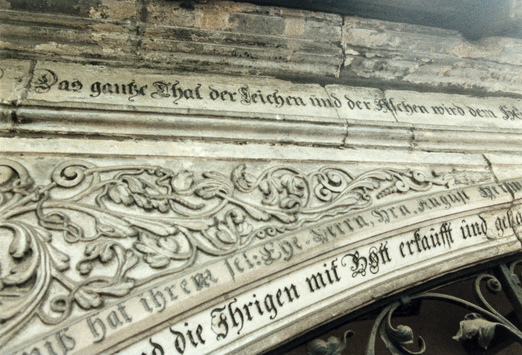 Das gantze Thal der Leichen und der Aschen wird dem He
niß hat ihrem sel: Ehe-Herrn, Hrn. August
d die Ihrigen mit Gott erkaufft und